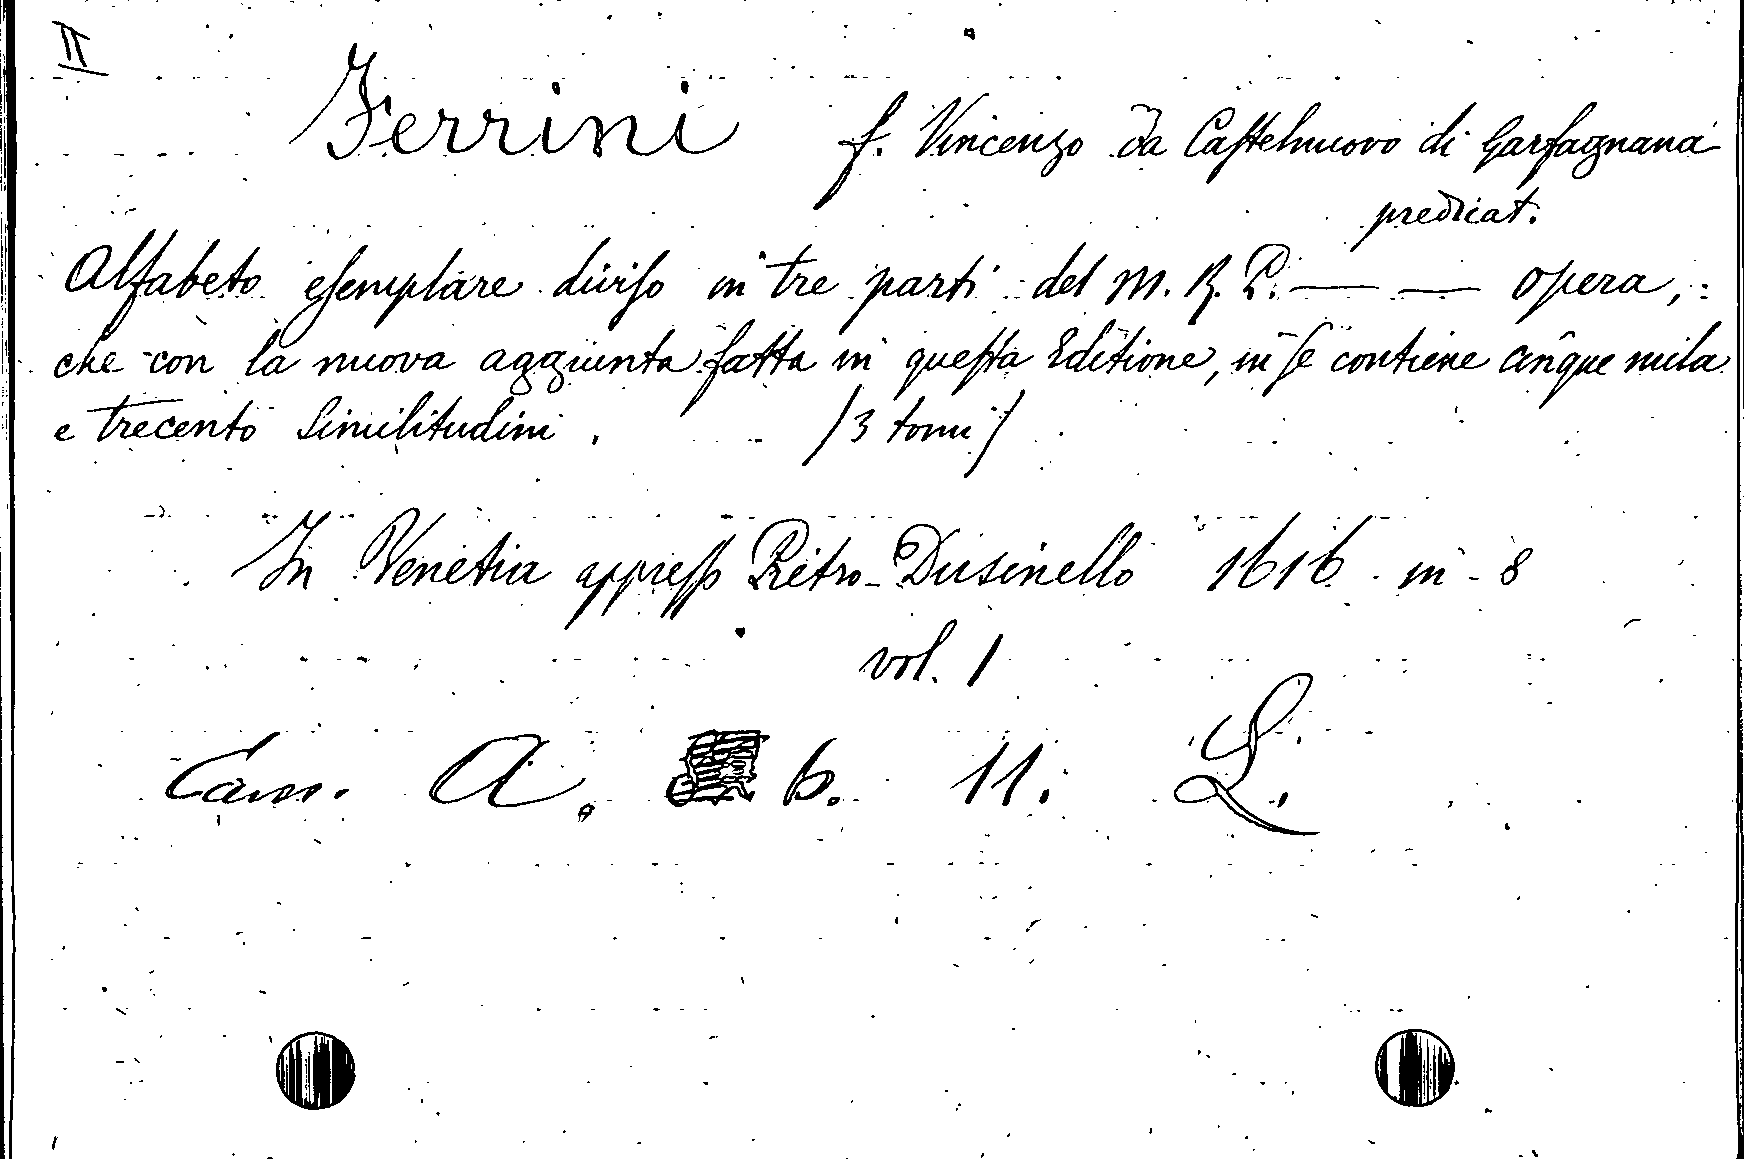 II
Ferrini f. Vincenzo da Castelnuovo di Garfagnana
predicat.
Alfabeto esemplare diviso in tre parti del M. R. P. — — opera,
che con la nuova aggiunta fatta in questa Editione, in se contiene cinque mila
e trecento similitudini. /3 tomi/
In Venetia appresso Pietro Dusinello 1616 in 8
vol. 1
Cam. A. b. 11. L.